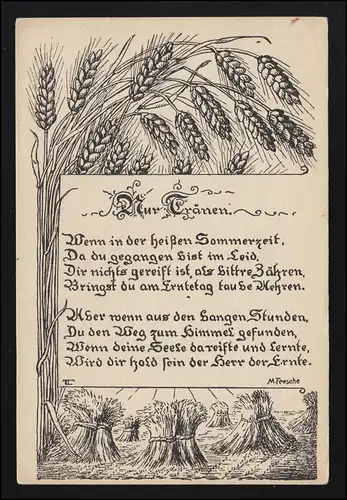 Nur Tränen.
Wenn in der heißen Sommerzeit,
Da du gegangen bist im Leid,
Dir nichts gereift ist, als bittre Zähren,
Bringst du am Erntetag taube Aehren.
Aber wenn aus den bangen Stunden,
Du den Weg zum Himmel gefunden,
Wenn deine Seele da reifte und lernte,
Wird dir hold sein der Herr der Ernte.
III. M. Feesche